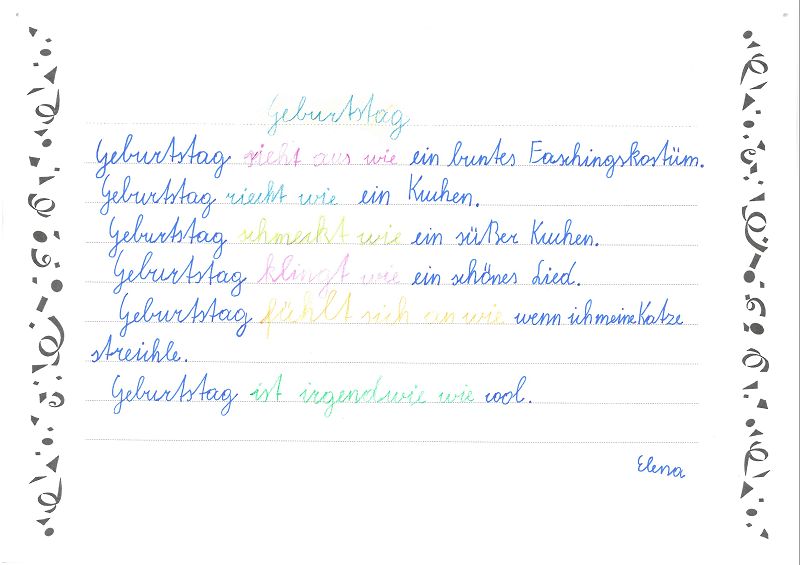 Geburtstag
Geburtstag sieht aus wie ein buntes Faschingskostüm.
Geburtstag riecht wie ein Kuchen.
Geburtstag schmeckt wie ein süßer Kuchen.
Geburtstag klingt wie ein schönes Lied.
Geburtstag fühlt sich an wie wenn ich meine Katze
streichle.
Geburtstag ist irgendwie wie cool.
Elena